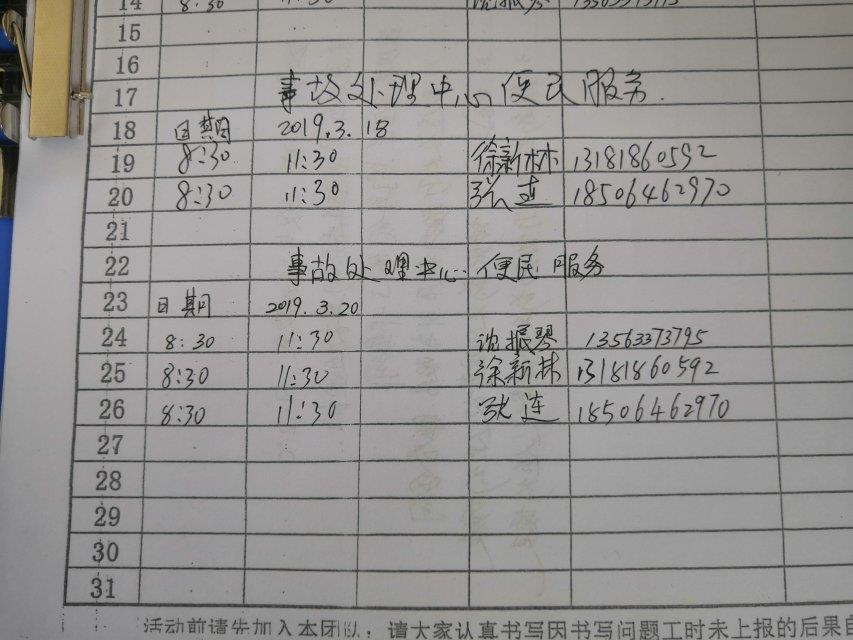 14 8:30 11:30
15
16
17 事故处理中心便民服务.
18 日期 2019.3.18
19 8:30 11:30 徐新林 13181860592
20 8:30 11:30 张连 18506462970
21
22 事故处理中心.便民服务
23 日期 2019.3.20
24 8:30 11:30 沈振琴 13563373795
25 8:30 11:30 徐新林 13181860592
26 8:30 11:30 张连 18506462970
27
28
29
30
31
活动前请先加入本团队；请大家认真书写因书写问题工时未上报的后果自